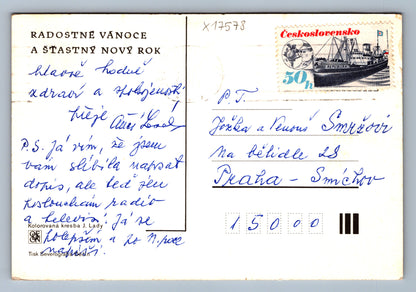 RADOSTNÉ VÁNOCE
A ŠŤASTNÝ NOVÝ ROK
hlavně hodně
zdraví a spokojenosti
přeje
P.S. Já vím, že jsem
vám slíbila napsat
dopis, ale teď jen
poslouchám radio
a televizi! Já se
polepším a po N. roce
napíši.
Kolorovaná kresba J. Lady
Tisk Severografia
X 17578
Československo
50h
P.T.
Jožka a Venouš Smržovi
Na bělidle 28
Praha - Smíchov
15000